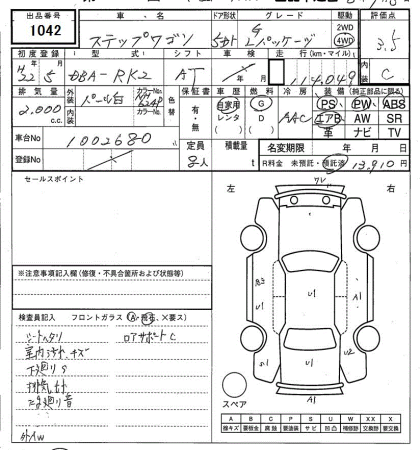 出品番号
1042
車・名
ステップワゴン
ドア形状
5ドア
グレード
G Lパッケージ
駆動
2WD
4WD
評価点
3.5
初度登録
型式
シフト
車検
走行(km・マイル)
内装
22 5
DBA-RK2
AT
114,049
C
排気量
2,000
c.c.
外装
パール白
内装
カラーNo.
NH624P
カラーNo.
色替
保証書
有・無
車歴
自家用
レンタ
( )
燃料
G
D
( )
冷房
AAC
装備(純正部品に限る)
PS PW ABS
エアB AW SR
革 ナビ TV
車台No
1002680
登録No
定員
8人
積載量
t
名変期限
年 月 日
R料金 未預託・預託済
13,910円
セールスポイント
左
右
※注意事項記入欄(修復・不具合箇所および状態等)
検査員記入 フロントガラス(A・飛石、×要ス)
シートヘタリ
ロアサポートC
室内ヨゴレ、キズ
下廻りS
外イW
U1
A1
U1
U1
U1
U2
A1
スペア
A B C P S U W X XX
線キズ 要板金 腐蝕 要塗装 サビ 凹凸 補修跡 交換跡 要交換